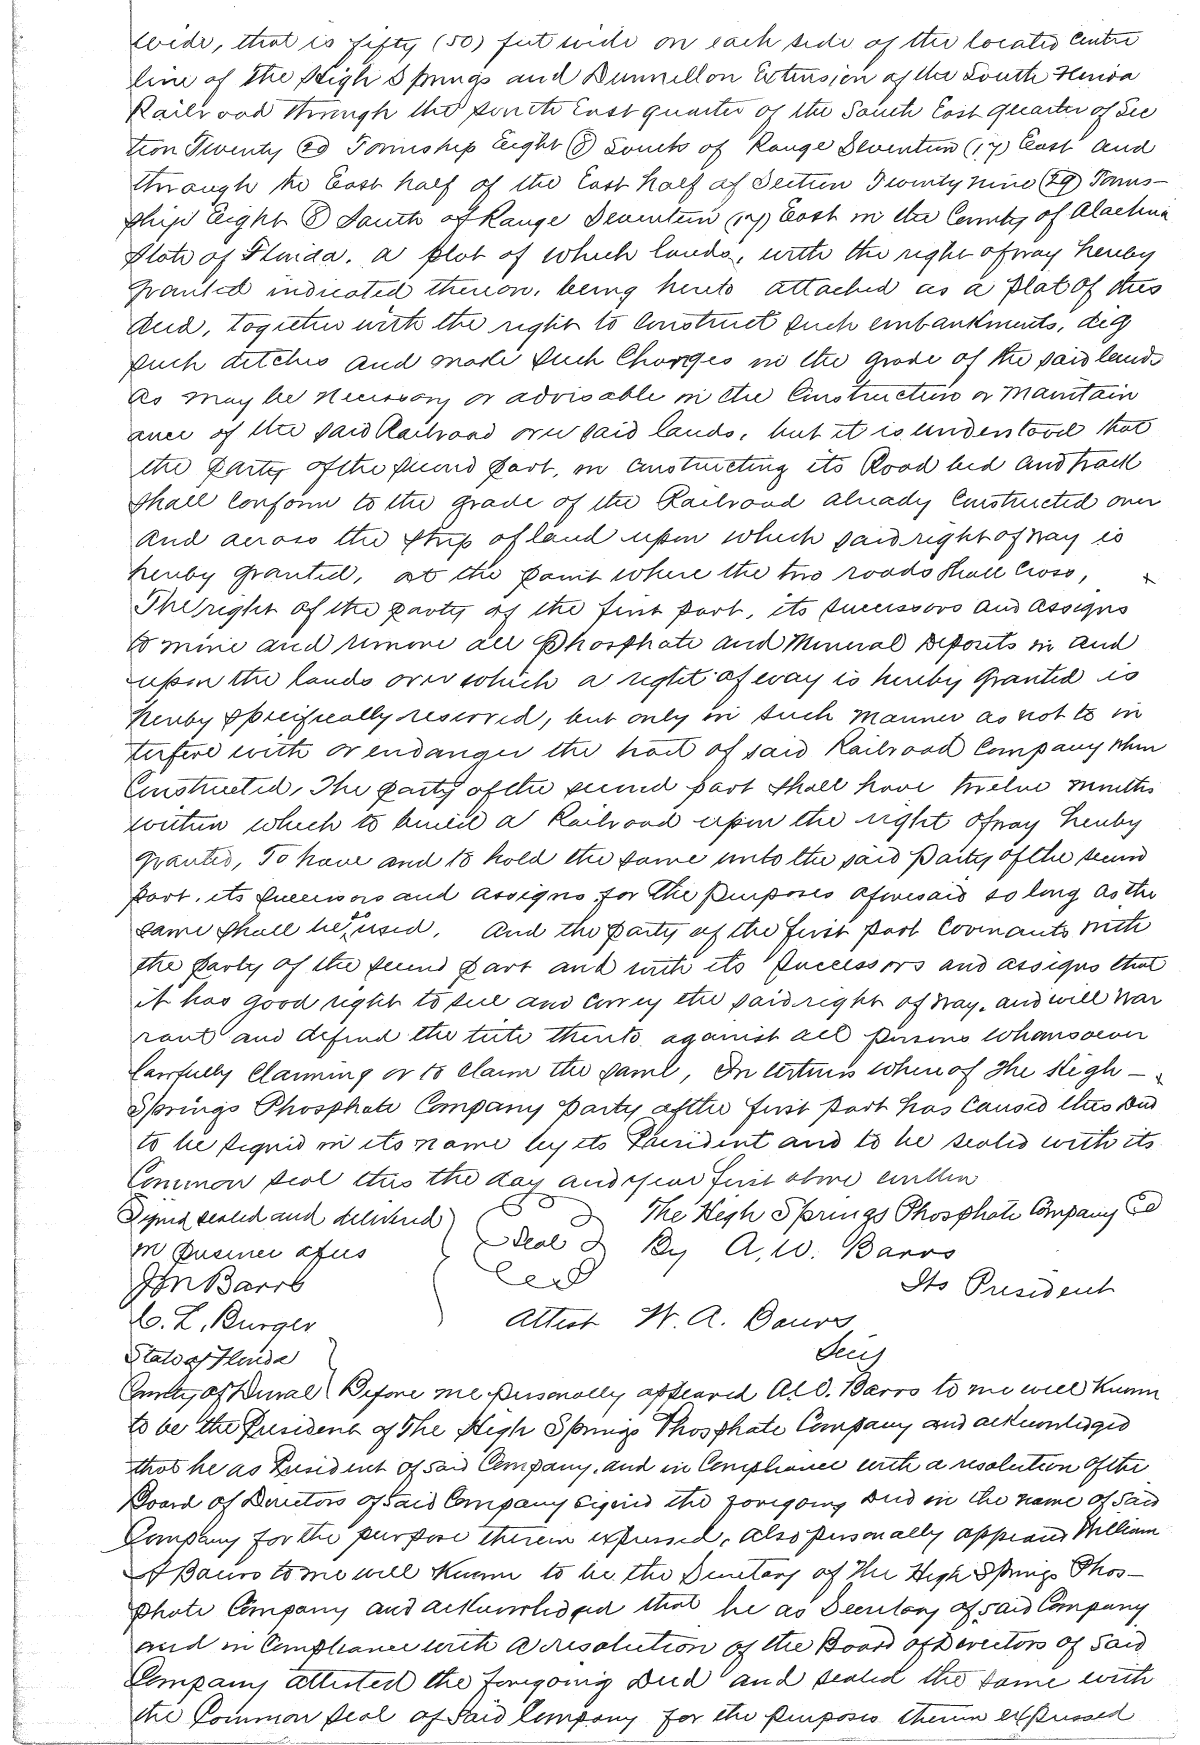 wide, that is fifty (50) feet wide on each side of the located centre
line of the High Springs and Dunnellon Extension of the South Florida
Railroad through the South East quarter of the South East quarter of Sec
tion Twenty 20 Township Eight (8) South of Range Seventeen (17) East and
through the East half of the East half of Section Twenty nine (29) Town-
ship Eight (8) South of Range Seventeen (17) East in the County of Alachua
State of Florida. a plot of which lands, with the right of way hereby
granted indicated thereon, being hereto attached as a plat of this
deed, together with the right to construct such embankments, dig
such ditches and make such Changes in the grade of the said lands
as may be necessary or advisable in the Construction or maintain
ance of the said Railroad over said lands, but it is understood that
the party of the second part, in constructing its Road bed and track
shall conform to the grade of the Railroad already Constructed over
and across the strip of land upon which said right of way is
hereby granted, at the point where the two roads shall Cross,
The right of the party of the first part, its successors and assigns
to mine and remove all phosphate and mineral Deposits in and
upon the lands over which a right of way is hereby granted is
hereby specifically reserved, but only in such manner as not to in
terfere with or endanger the of said Railroad Company when
Constructed, The party of the second part shall have twelve months
within which to build a Railroad upon the right of way hereby
granted, To have and to hold the same unto the said party of the second
part, its successors and assigns for the purposes aforesaid so long as the
same shall be so used. And the party of the first part Covenants with
the party of the second part and with its successors and assigns that
it has good right to sell and convey the said right of way, and will war
rant and defend the title thereto against all persons whomsoever
lawfully Claiming or to claim the same, In witness whereof The High-
Springs Phosphate Company party of the first part has caused this deed
to be signed in its name by its President and to be sealed with its
Common seal this the day and year first above written
Signed sealed and delivered The High Springs Phosphate Company
in presence of us Seal By A. W. Barrs
J. M. Barrs Its President
C. L. Burger Attest W. A. Bours
State of Florida Secy
County of Duval Before me personally appeared A. W. Barrs to me well Known
to be the President of The High Springs Phosphate Company and acknowledged
that he as President of said Company, and in Compliance with a resolution of the
Board of Directors of Said Company signed the foregoing Deed in the name of said
Company for the purpose therein expressed, also personally appeared William
A Bours to me well Known to be the Secretary of The High Springs Phos-
phate Company and acknowledged that he as Secretary of said Company
and in Compliance with a resolution of the Board of Directors of Said
Company attested the foregoing Deed and sealed the same with
the Common seal of Said Company for the purposes therein expressed